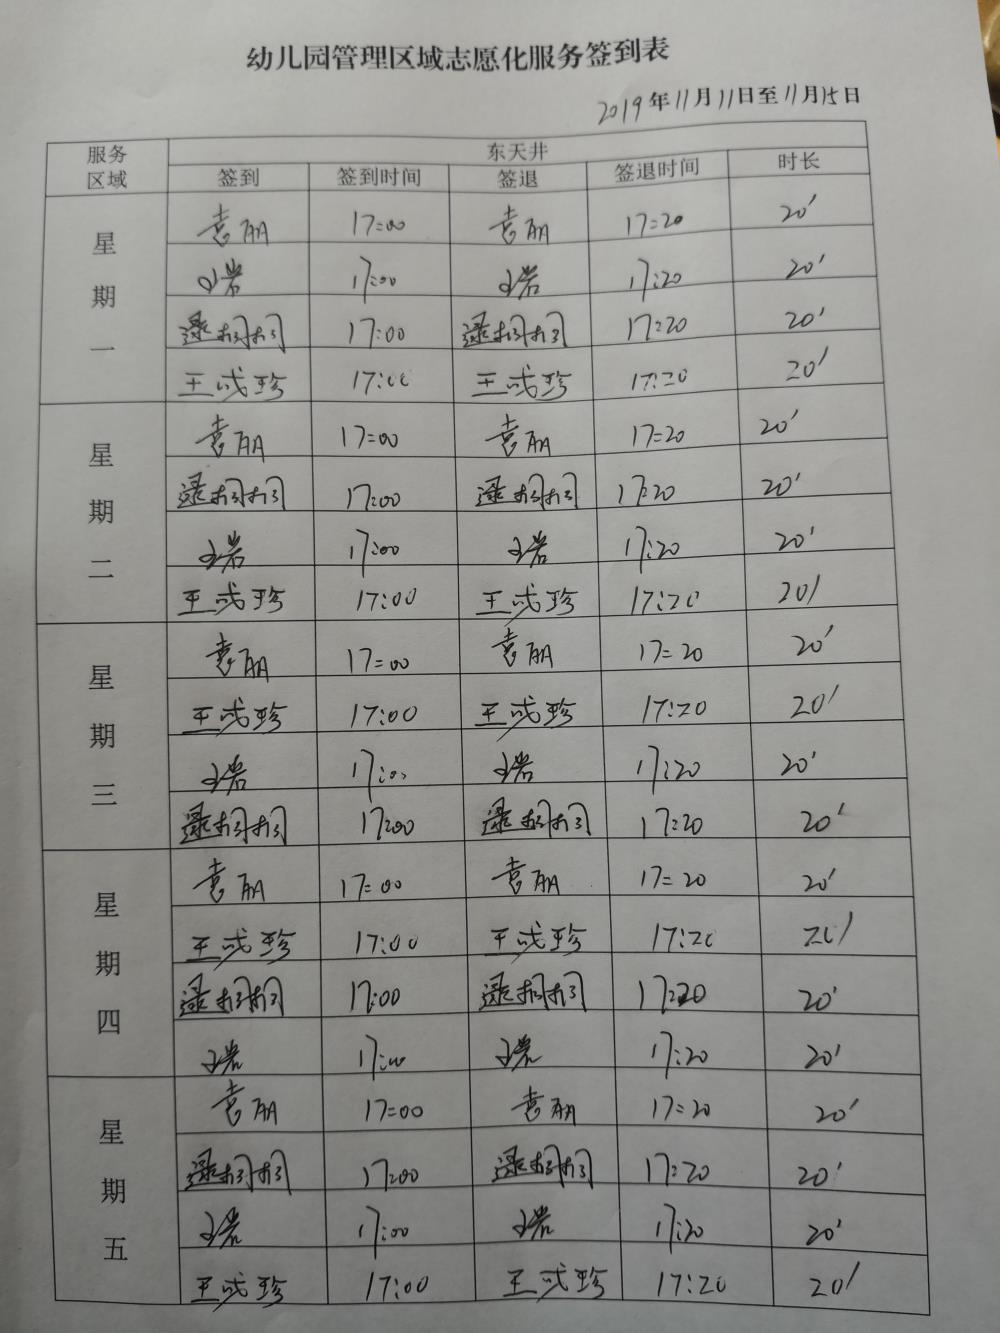 幼儿园管理区域志愿化服务签到表
2019年11月11日至11月15日
服务区域 东天井
签到 签到时间 签退 签退时间 时长
星期一
袁丽 17:00 袁丽 17:20 20'
王岩 17:00 王岩 17:20 20'
逯桐桐 17:00 逯桐桐 17:20 20'
王成珍 17:00 王成珍 17:20 20'
星期二
袁丽 17:00 袁丽 17:20 20'
逯桐桐 17:00 逯桐桐 17:20 20'
王岩 17:00 王岩 17:20 20'
王成珍 17:00 王成珍 17:20 20'
星期三
袁丽 17:00 袁丽 17:20 20'
王成珍 17:00 王成珍 17:20 20'
王岩 17:00 王岩 17:20 20'
逯桐桐 17:00 逯桐桐 17:20 20'
星期四
袁丽 17:00 袁丽 17:20 20'
王成珍 17:00 王成珍 17:20 20'
逯桐桐 17:00 逯桐桐 17:20 20'
王岩 17:00 王岩 17:20 20'
星期五
袁丽 17:00 袁丽 17:20 20'
逯桐桐 17:00 逯桐桐 17:20 20'
王岩 17:00 王岩 17:20 20'
王成珍 17:00 王成珍 17:20 20'